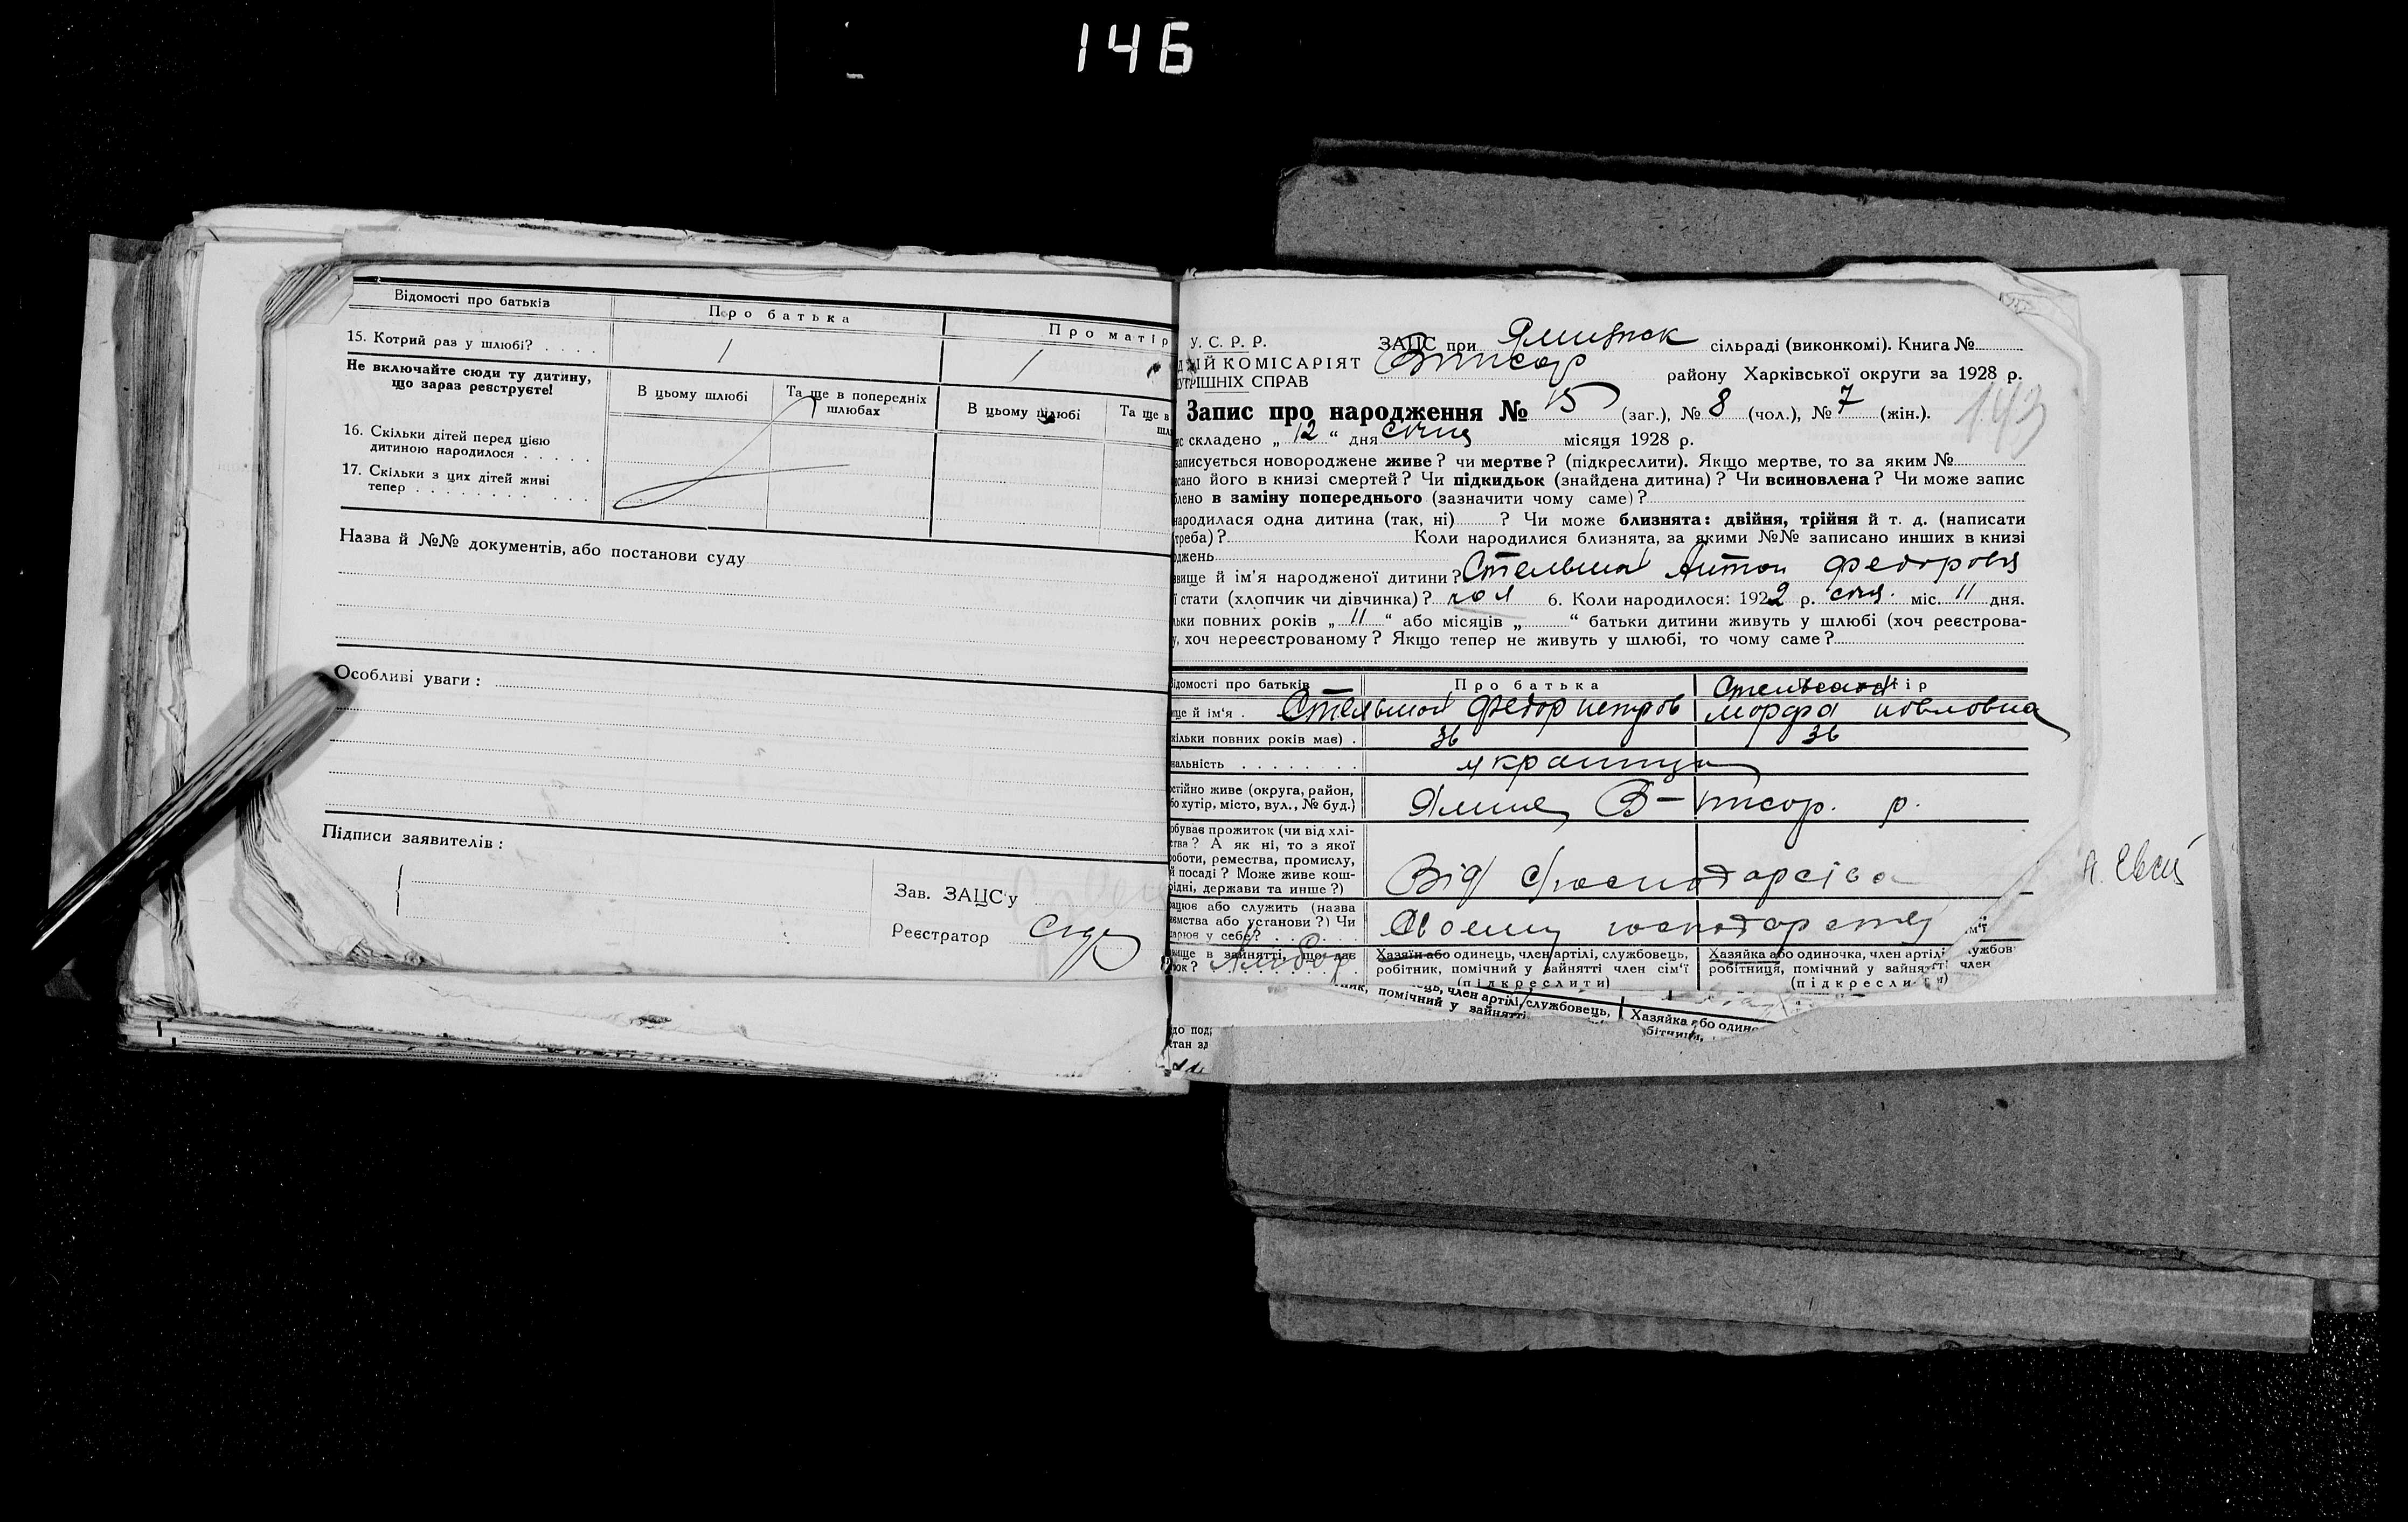 146
Відомості про батьків
Про батька
Про матір
15. Котрий раз у шлюбі? . . . .
1
1
Не включайте сюди ту дитину,
що зараз реєструєте!
В цьому шлюбі
Та ще в попередніх
шлюбах
В цьому шлюбі
Та ще в
шл
16. Скільки дітей перед цією
дитиною народилося . . . . .
17. Скільки з цих дітей живі
тепер . . . . . . . . . . .
Назва й №№ документів, або постанови суду
Особливі уваги :
Підписи заявителів :
Зав. ЗАЦС'у
Реєстратор
143
У. С. Р. Р.
ЗАЦС при
сільраді (виконкомі). Книга №
ИЙ КОМІСАРІЯТ
УТРІШНІХ СПРАВ
району Харківської округи за 1928 р.
Запис про народження № 15 (заг.), № 8 (чол.), № 7 (жін.).
ис складено „ 12 “ дня січня місяця 1928 р.
записується новороджене живе? чи мертве? (підкреслити). Якщо мертве, то за яким №
исано його в книзі смертей? Чи підкидьок (знайдена дитина)? Чи всиновлена? Чи може запис
блено в заміну попереднього (зазначити чому саме)?
народилася одна дитина (так, ні) ? Чи може близнята: двійня, трійня й т. д. (написати
треба)? Коли народилися близнята, за якими №№ записано инших в книзі
оджень
звище й ім'я народженої дитини? Стельмах Антон Федоровч
ї стати (хлопчик чи дівчинка)? чол 6. Коли народилося: 1922 р. січ. міс. 11 дня.
льки повних років „ 11 “ або місяців „ “ батьки дитини живуть у шлюбі (хоч реєстрова-
у, хоч нереєстрованому? Якщо тепер не живуть у шлюбі, то чому саме?
Відомості про батьків
Про батька
ір
ще й ім'я .
Стельмах Федор петров
морфа повловна
кільки повних років має) .
36
36
нальність . . . . . . . .
україниц
остійно живе (округа, район,
бо хутір, місто, вул., № буд.)
р.
обуває прожиток (чи від хлі-
ства? А як ні, то з якої
оботи, ремества, промислу,
й посаді? Може живе кош-
рідні, держави та инше?)
Від господарсіва
ацює або служить (назва
иємства або установи?) Чи
царює у себе? . . . . .
Своєму господарству
м'ї
вище в зайнятті, що дає
ток?
Хазяїн або одинець, член артілі, службовець,
робітник, помічний у зайнятті член сім'ї
(підкреслити)
Хазяйка або одиночка, член артілі
робітниця, помічний у зайнятті
(підкресли
ужбов
член
и)
ець, член артілі, службовець,
ник, помічний у зайнятті
Хазяйка або одино
бітниця,
до под
стан зд